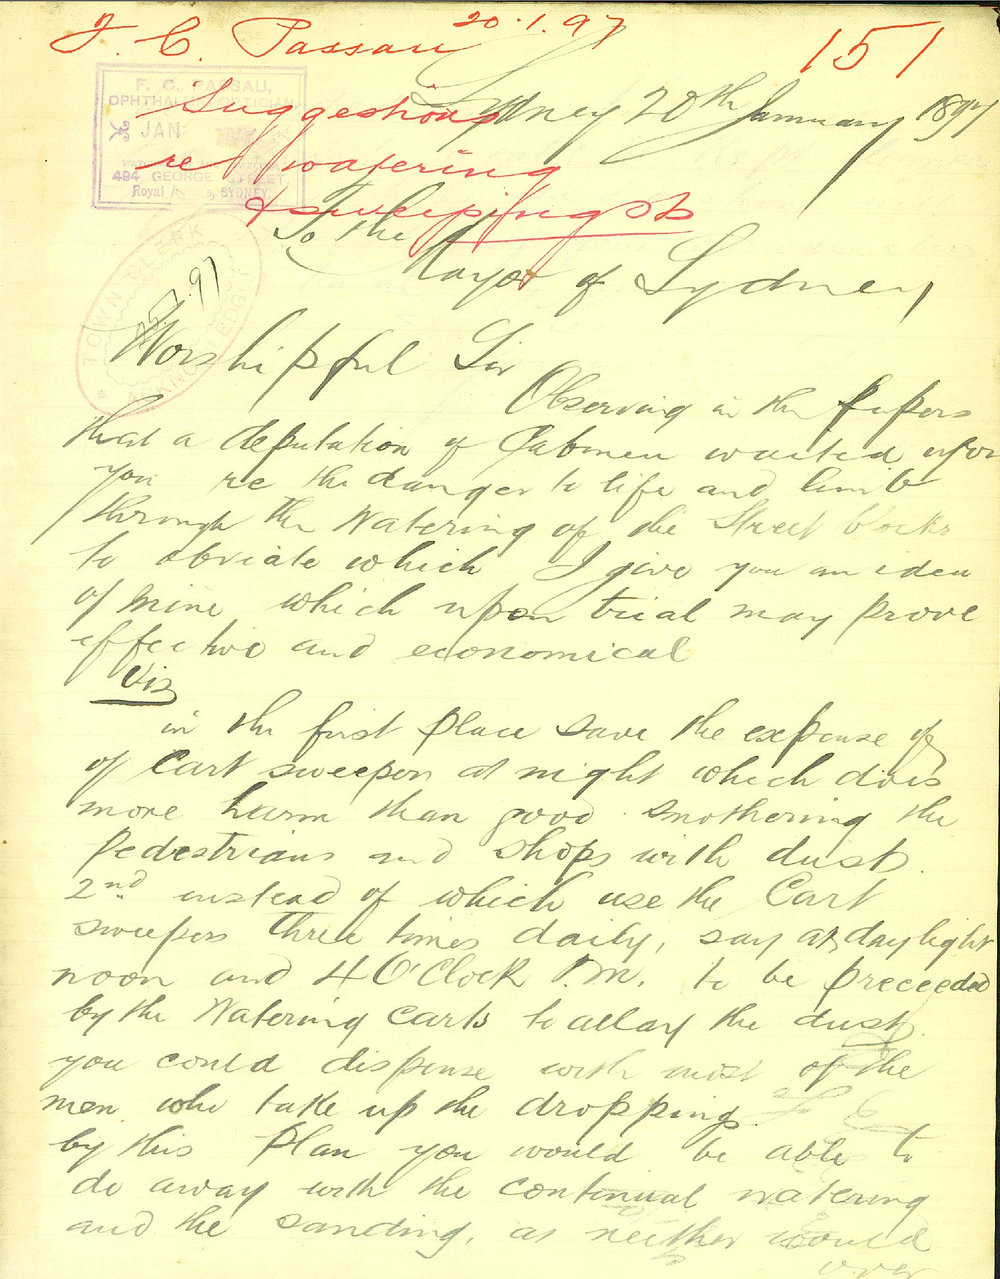 F. C. Passau 20.1.97
151
F. C. PASSAU,
OPHTHALMIC OPTICIAN,
JAN
494 GEORGE STREET,
Royal SYDNEY
Suggestions
re watering
& sweeping Sts
Sydney 20th January 1897
To the
Mayor of Sydney
TOWN CLERK
ACKNOWLEDGED
25.1.97
Worshipful Sir
Observing in the papers
that a deputation of Cabmen waited upon
you re the danger to life and limb
through the Watering of the Street blocks
to obviate which I give you an idea
of mine which upon trial may prove
effective and economical
Viz
in the first place save the expense of
of Cart sweepers at night which does
more harm than good smothering the
Pedestrians and shops with dust.
2nd instead of which use the Cart
sweepers three times daily, say at daylight
noon and 4 O'Clock P.M. to be preceeded
by the Watering Carts to allay the dust.
you could dispense with most of the
men who take up the droppings
by this Plan you would be able to
do away with the continual watering
and the sanding, as neither would
over